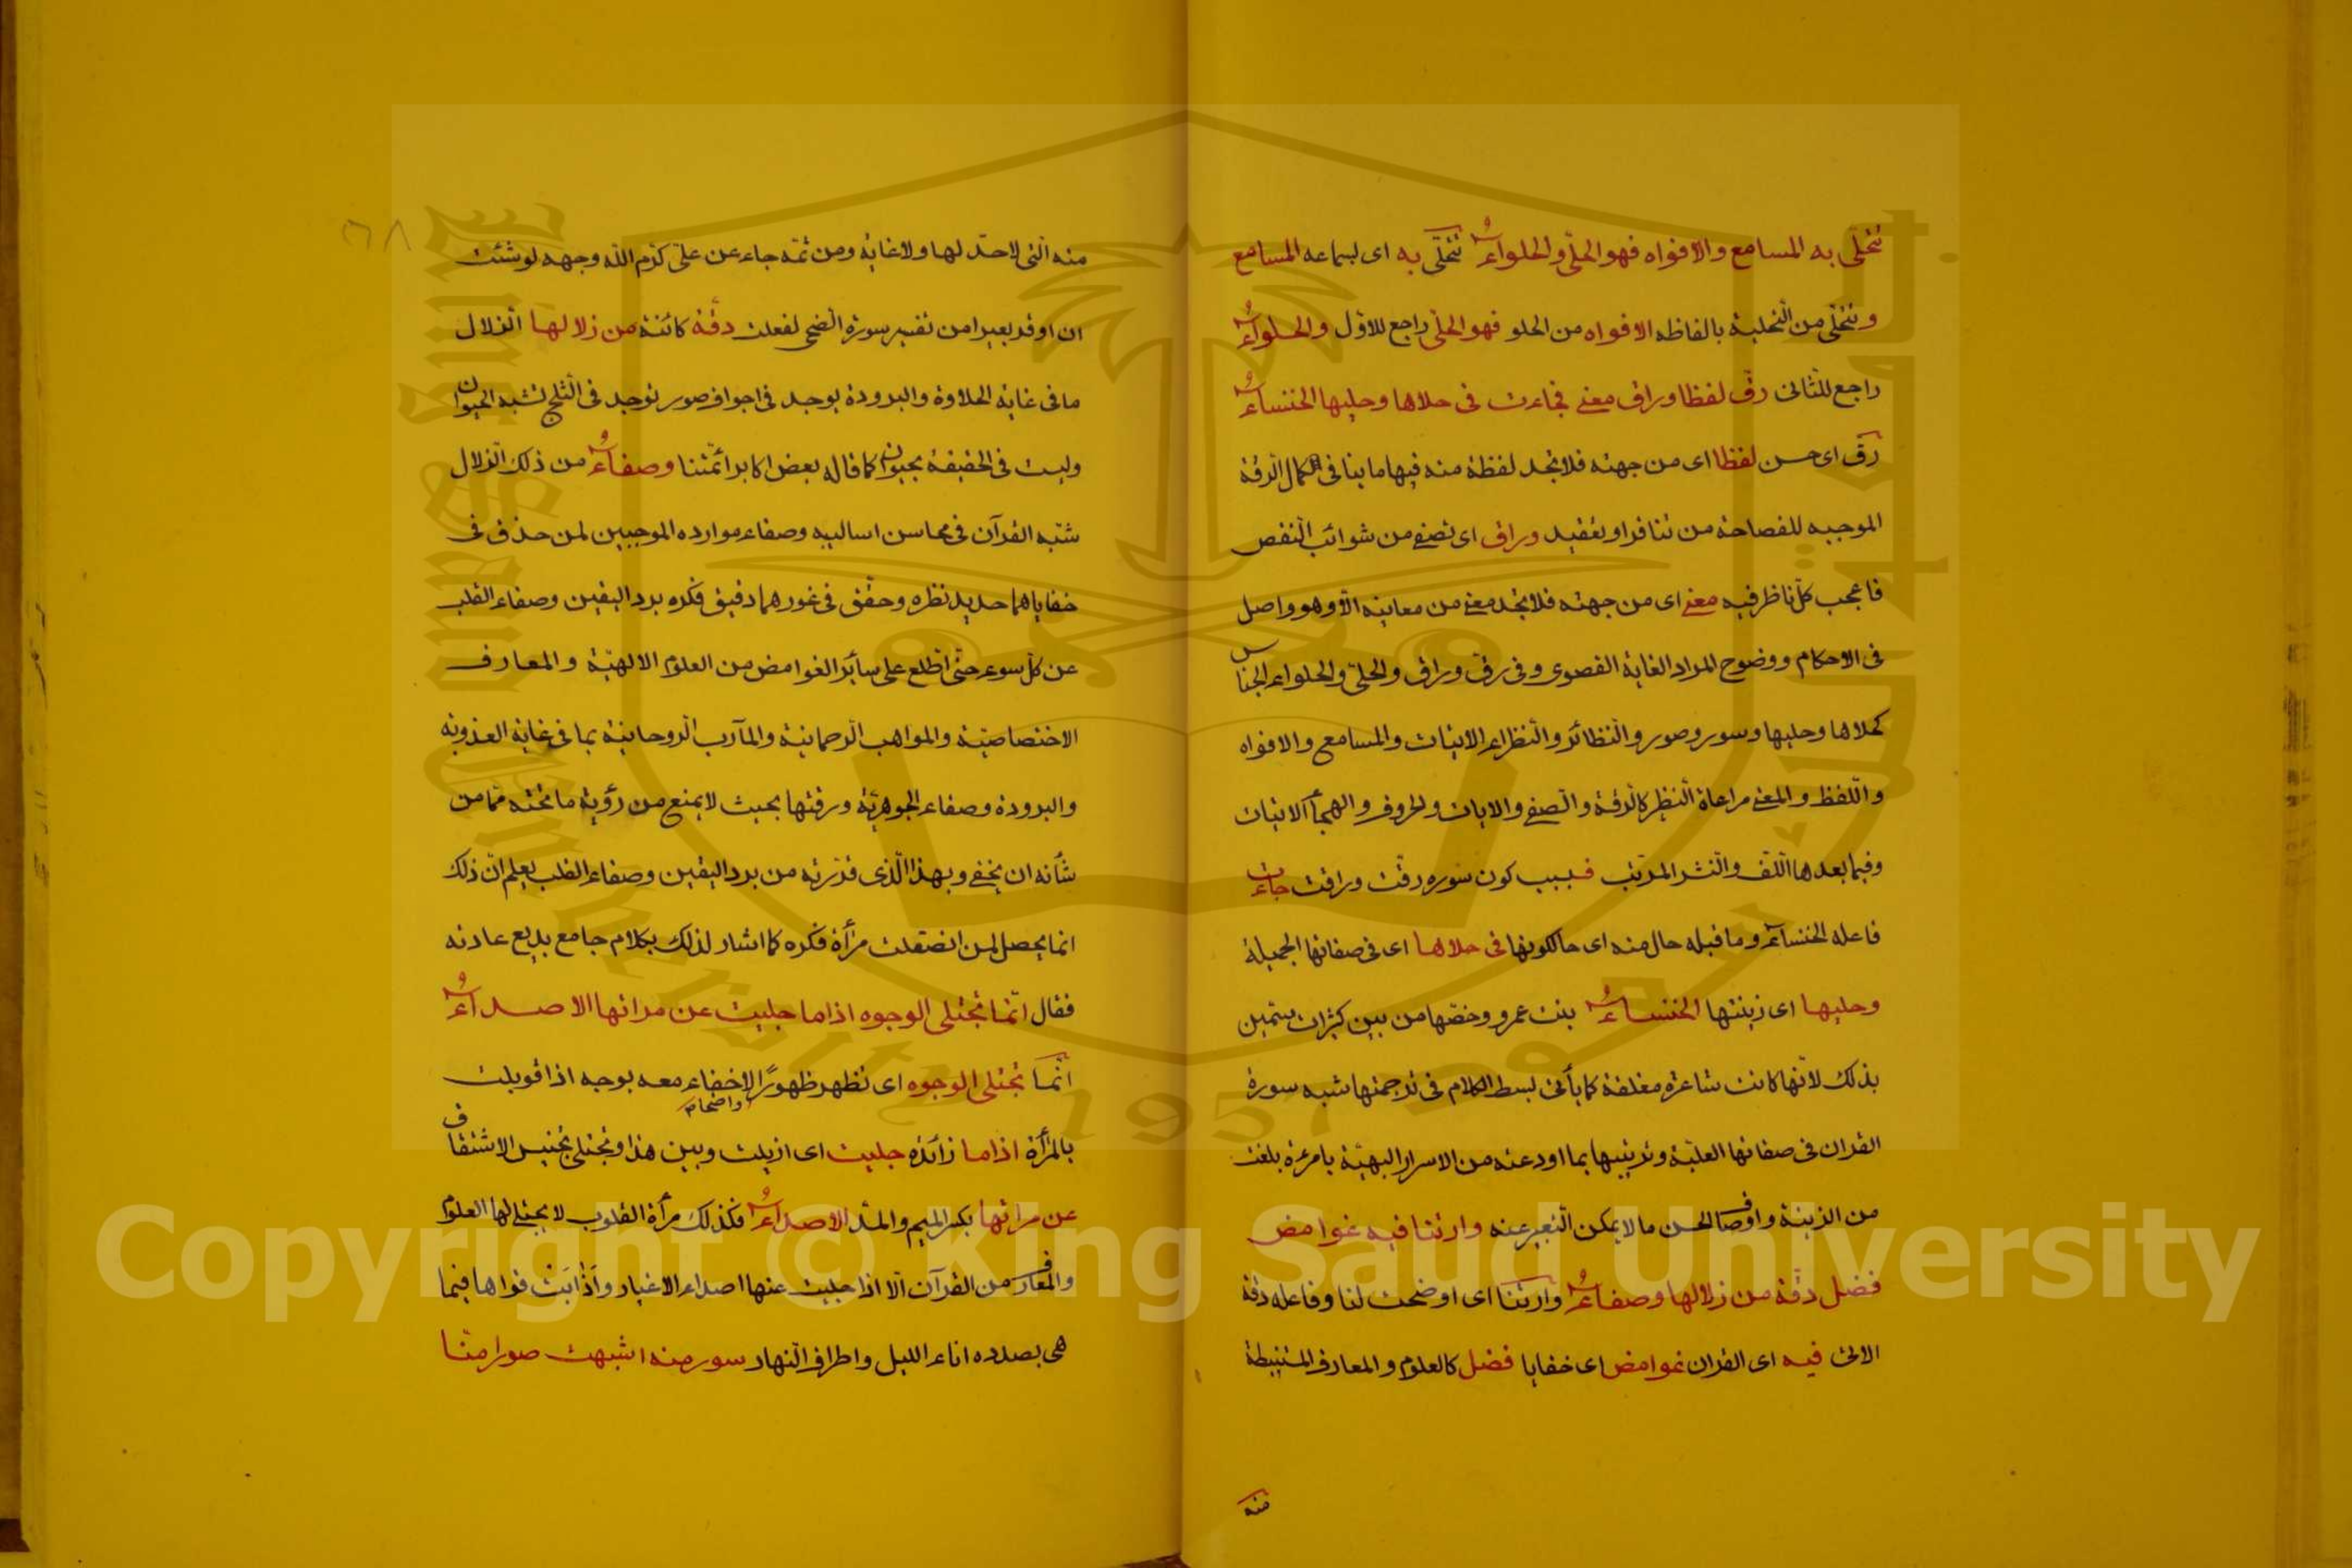 تتحلى به المسامع والافواه فهو الحلّى والحلواءُ تتحلّى به اى لسماعه المسامع
وتتحلّى من التحلية بالفاظه الافواه من الحلو فهو الحلّى راجع للاوّل والحلواءُ
راجع للثانى رقّ لفظا وراق معنى فجاءت فى حلاها وحليها الخنساءُ
رقّ اى حسن لفظا اى من جهته فلا تجد لفظة منه فيها ما ينافى الكمال الرقة
الموجبه للفصاحة من تنافر او تعقيد وراق اى تصفى من شوائب النقص
فاعجب كلّ ناظر فيه معنى اى من جهته فلا تجد معنى من معانيه الّا وهو واصل
فى الاحكام ووضوح المراد الغاية القصوى وفى رقّ وراق والحلىّ والحلواء الجناس
كحلاها وحليها وسور وصور والنظائر والنظراء الاتيات والمسامع والافواه
واللفظ والمعنى مراعاة النظير كالرقة والصفى والايات والحروف والهجأ الاتيات
وفيما بعدها اللّف والنشر المرتب فبسبب كون سوره رقّت وراقت جاءت
فاعله الخنساء وما قبله حال منه اى حالكونها فى حلاها اى فى صفاتها الجميلة
وحليها اى زينتها الخنساءُ بنت عمرو وخصّها من بين كثيرات يسمين
بذلك لانّها كانت شاعرة مفلقة كما يأتى بسط الكلام فى ترجمتها شبه سورة
القران فى صفاتها العليّة وتزيينها بما اودعته من الاسرار البهيّة بامرءة بلغت
من الزينة واوصاف الحسن ما لا يمكن التعبير عنه وارتنا فيه غوامض
فضل رقّة من زلالها وصفاءُ وارتنا اى اوضحت لنا وفاعله رقة
الاتى فيه اى القران غوامض اى خفايا فضل كالعلوم والمعارف المستنبطة
منه
٦٨
منه الّتى لاحدّ لها ولا غاية ومن ثمّه جاء عن علىّ كرّم اللّه وجهه لو شئت
ان اوقر بعيرا من تفسير سورة الضحى لفعلت رقّة كائنة من زلالها الزلال
ما فى غاية الحلاوة والبرودة يوجد فى اجواف صور توجد فى الثلج تشبه الحيوان
وليست فى الحقيقة بحيوان كما قاله بعض اكابر ائمّتنا وصفاءُ من ذلك الزلال
شبّه القرآن فى محاسن اساليبه وصفاء موارده الموجبين لمن حذق فى
خفاياهما حديد نظره وحقّق فى غورهما دقيق فكره برد اليقين وصفاء القلب
عن كلّ سوء حتّى اطّلع على سائر الغوامض من العلوم الالهيّة والمعارف
الاختصاصيّة والمواهب الرحمانية والمآرب الروحانية بما فى غاية العذوبه
والبرودة وصفاء الجوهريّة ورقتها بحيث لا يمنع من رؤية ما تحته ممّا من
شأنه ان يخفى وبهذا الّذى قرّرته من برد اليقين وصفاء القلب يعلم انّ ذلك
انما يحصل لمن انصقلت مرأة فكره كما اشار لذلك بكلام جامع بديع عادته
فقال انّما تجتلى الوجوه اذا ما جليت عن مرائها الاصداءُ
انّما تجتلى الوجوه اى تظهر ظهورًا واضحا لا خفاء معه بوجه اذا قوبلت
بالمرأة اذا ما زائدة جليت اى ازيلت وبين هذا وتجتلى تجنيس الاشتقاق
عن مرائها بكسر الميم والمدّ الاصداءُ فكذلك مرأة القلوب لا يجتلى لها العلوم
والمعارف من القرآن الّا اذا جليت عنها اصداء الاغيار واذابت قواها فيما
هى بصدده اناء الليل واطراف النهار سور منه اشبهت صورا منّا
Copyright © King Saud University
King Saud University
1957